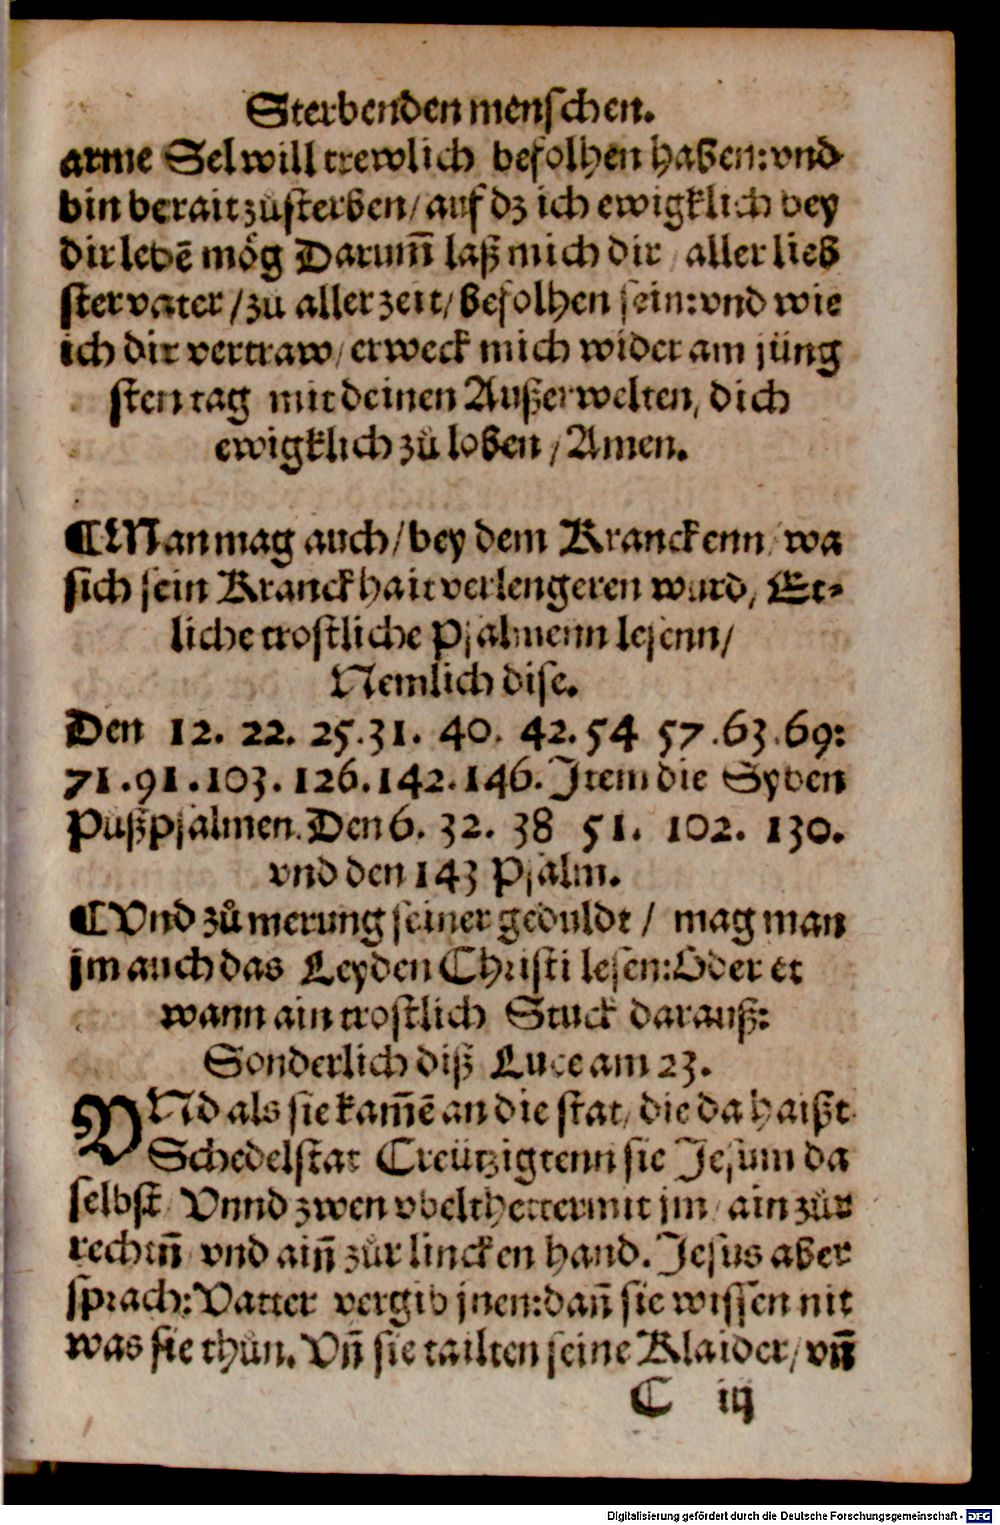 Sterbenden menschen.
arme Sel will trewlich befolhen haben: vnd
bin berait zůsterben / auf dz ich ewigklich bey
dir lebē mög Darum̄ laß mich dir / aller lieb
ster vater / zu aller zeit / befolhen sein: vnd wie
ich dir vertraw / erweck mich wider am jüng
sten tag mit deinen Außerwelten, dich
ewigklich zů loben / Amen.
¶Man mag auch / bey dem Kranckenn / wa
sich sein Kranckhait verlengeren wurd, Et-
liche trostliche Psalmenn lesenn /
Nemlich dise.
Den 12. 22. 25. 31. 40. 42. 54 57. 63. 69:
71. 91. 103. 126. 142. 146. Item die Syben
Pußpsalmen. Den 6. 32. 38 51. 102. 130.
vnd den 143 Psalm.
¶Vnd zů merung seiner geduldt / mag man
jm auch das Leyden Christi lesen: Oder et
wann ain trostlich Stuck darauß:
Sonderlich diß Luce am 23.
VNd als sie kam̄ē an die stat / die da haißt
Schedelstat Creützigtenn sie Jesum da
selbst / Vnnd zwen vbelthetter mit jm / ain zůr
rechtn̄ vnd ain̄ zůr lincken hand. Jesus aber
sprach: Vatter vergib jnen: dan̄ sie wissen nit
was sie thůn. Vn̄ sie tailten seine Klaider / vn̄
C iij
Digitalisierung gefördert durch die Deutsche Forschungsgemeinschaft - DFG